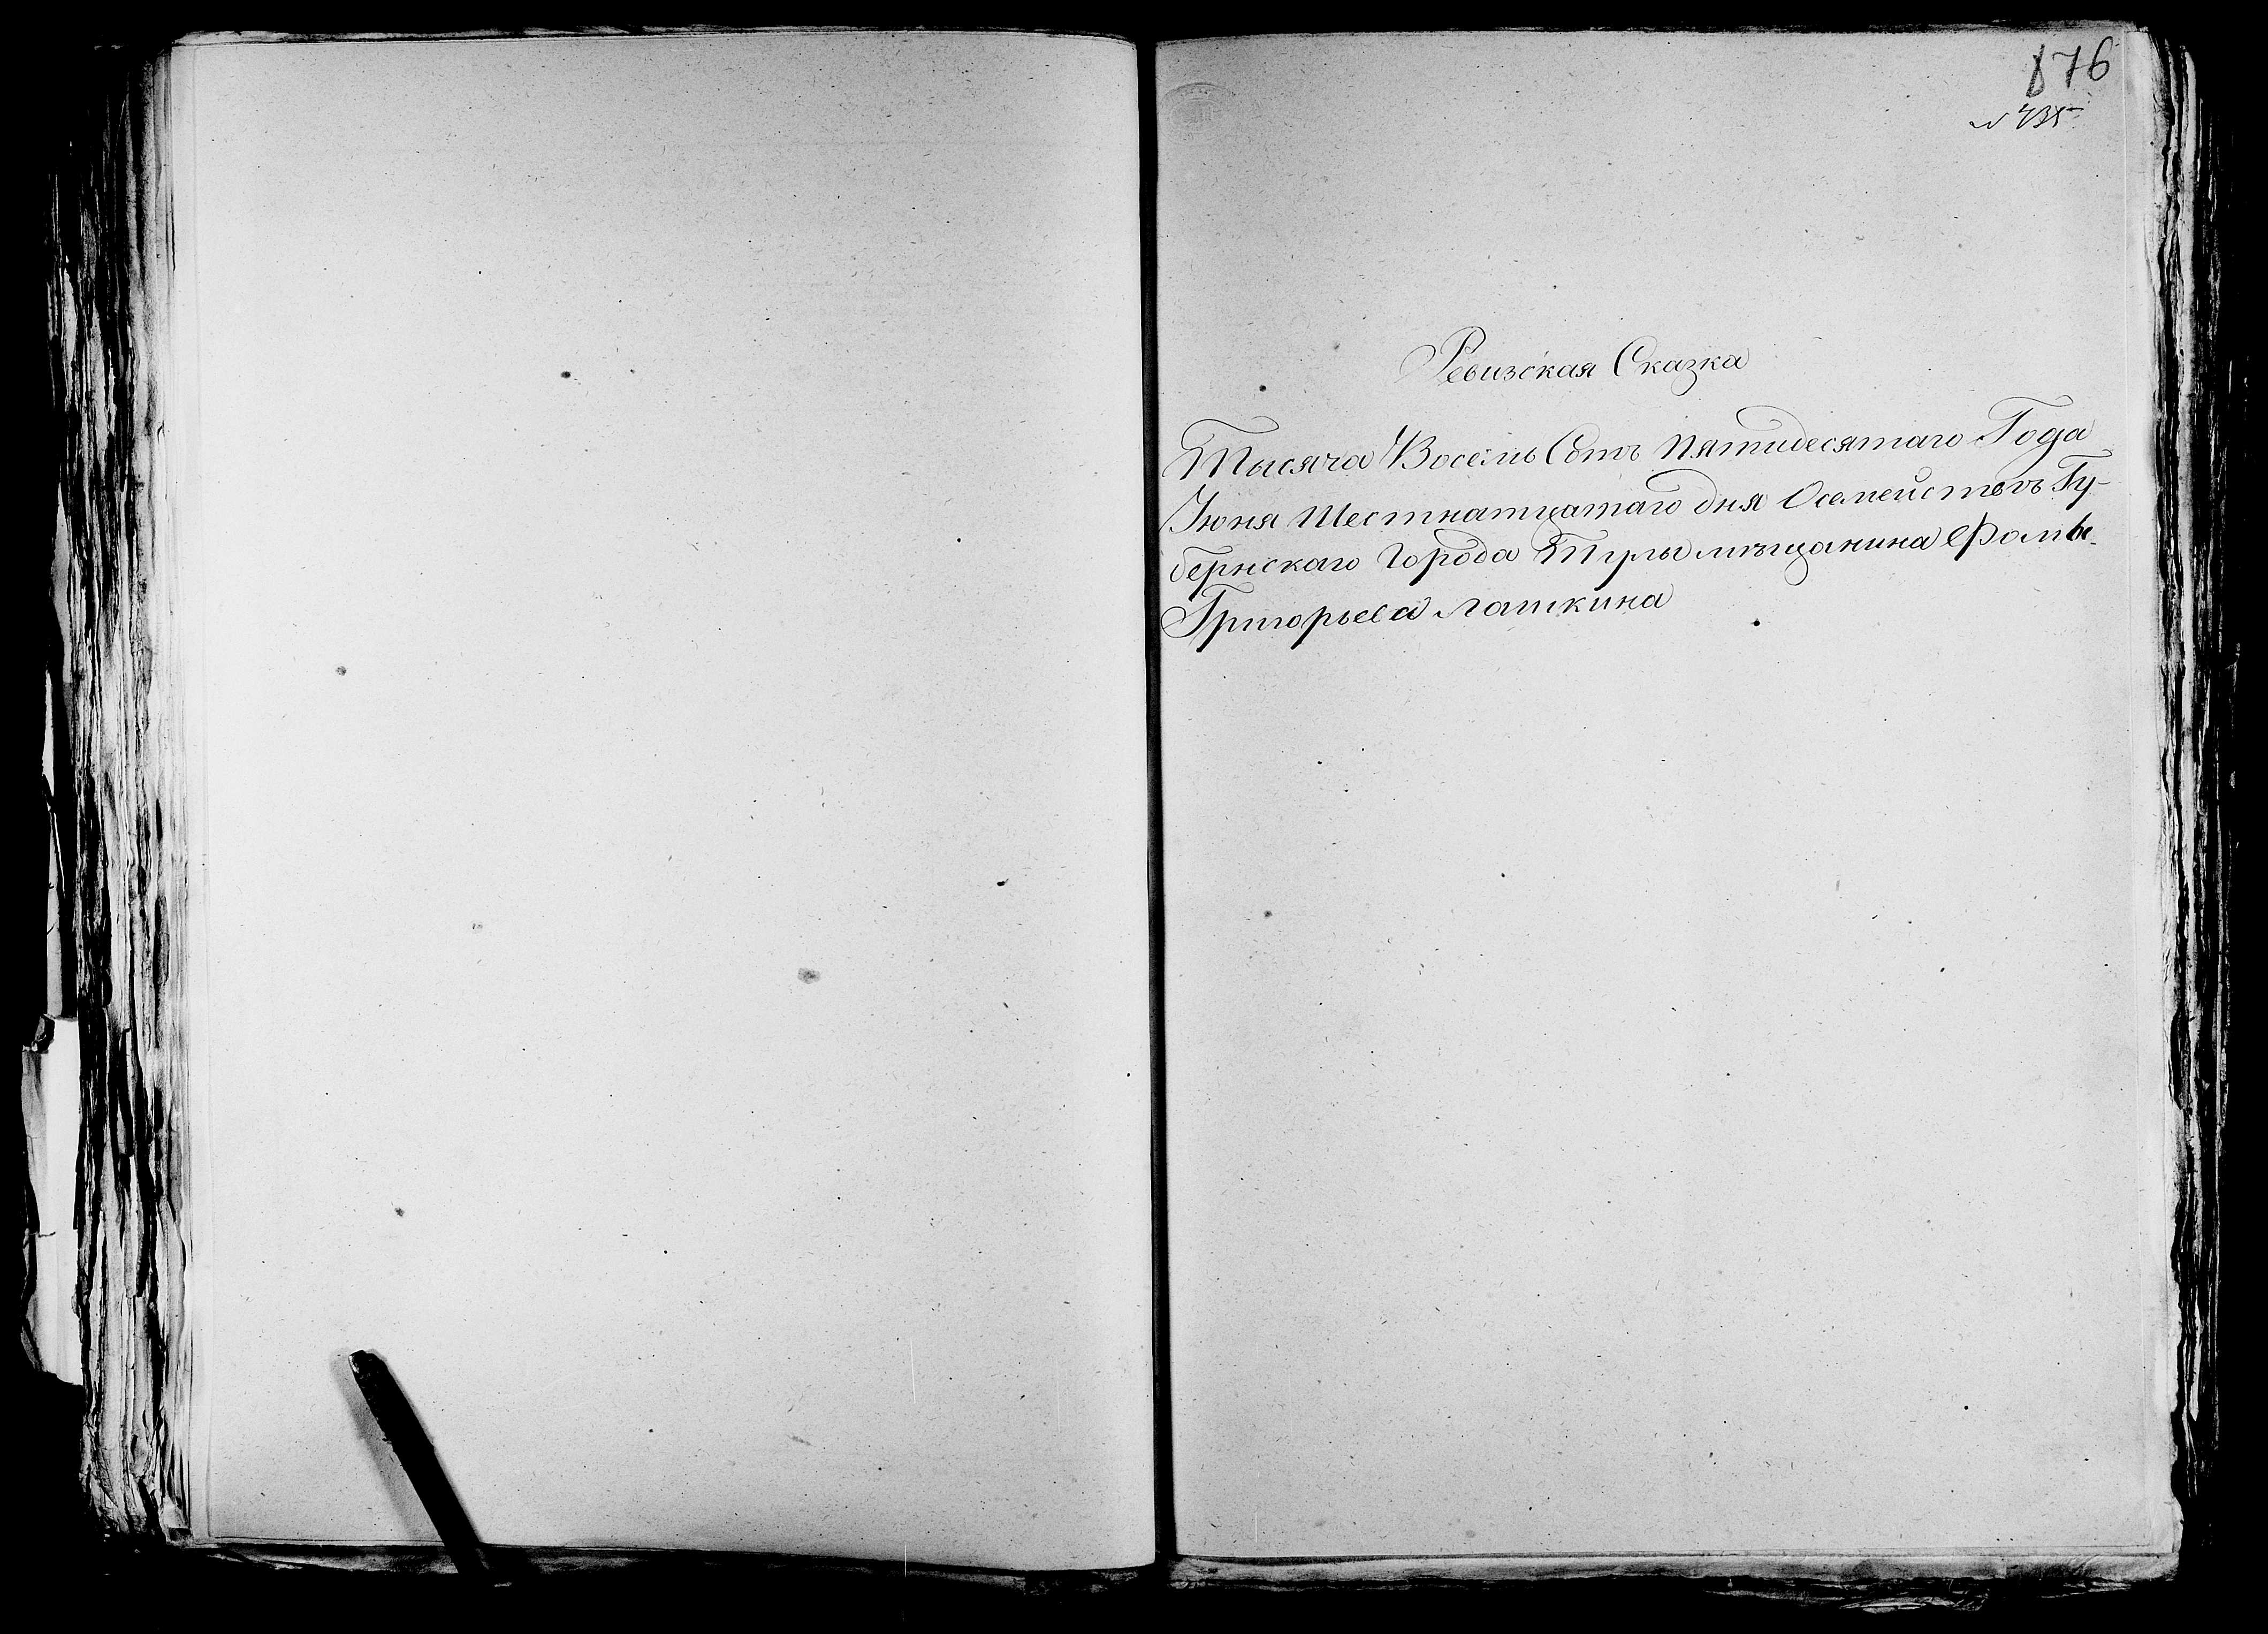 876
№ 735
Ревизская Сказка
Тысяча Восемь Сотъ Пятидесятаго Года
Іюня Шестнатцатаго дня Осемействѣ Гу-
бернскаго Города Тулы мѣщанина Фомы
Григорьева Лашкина